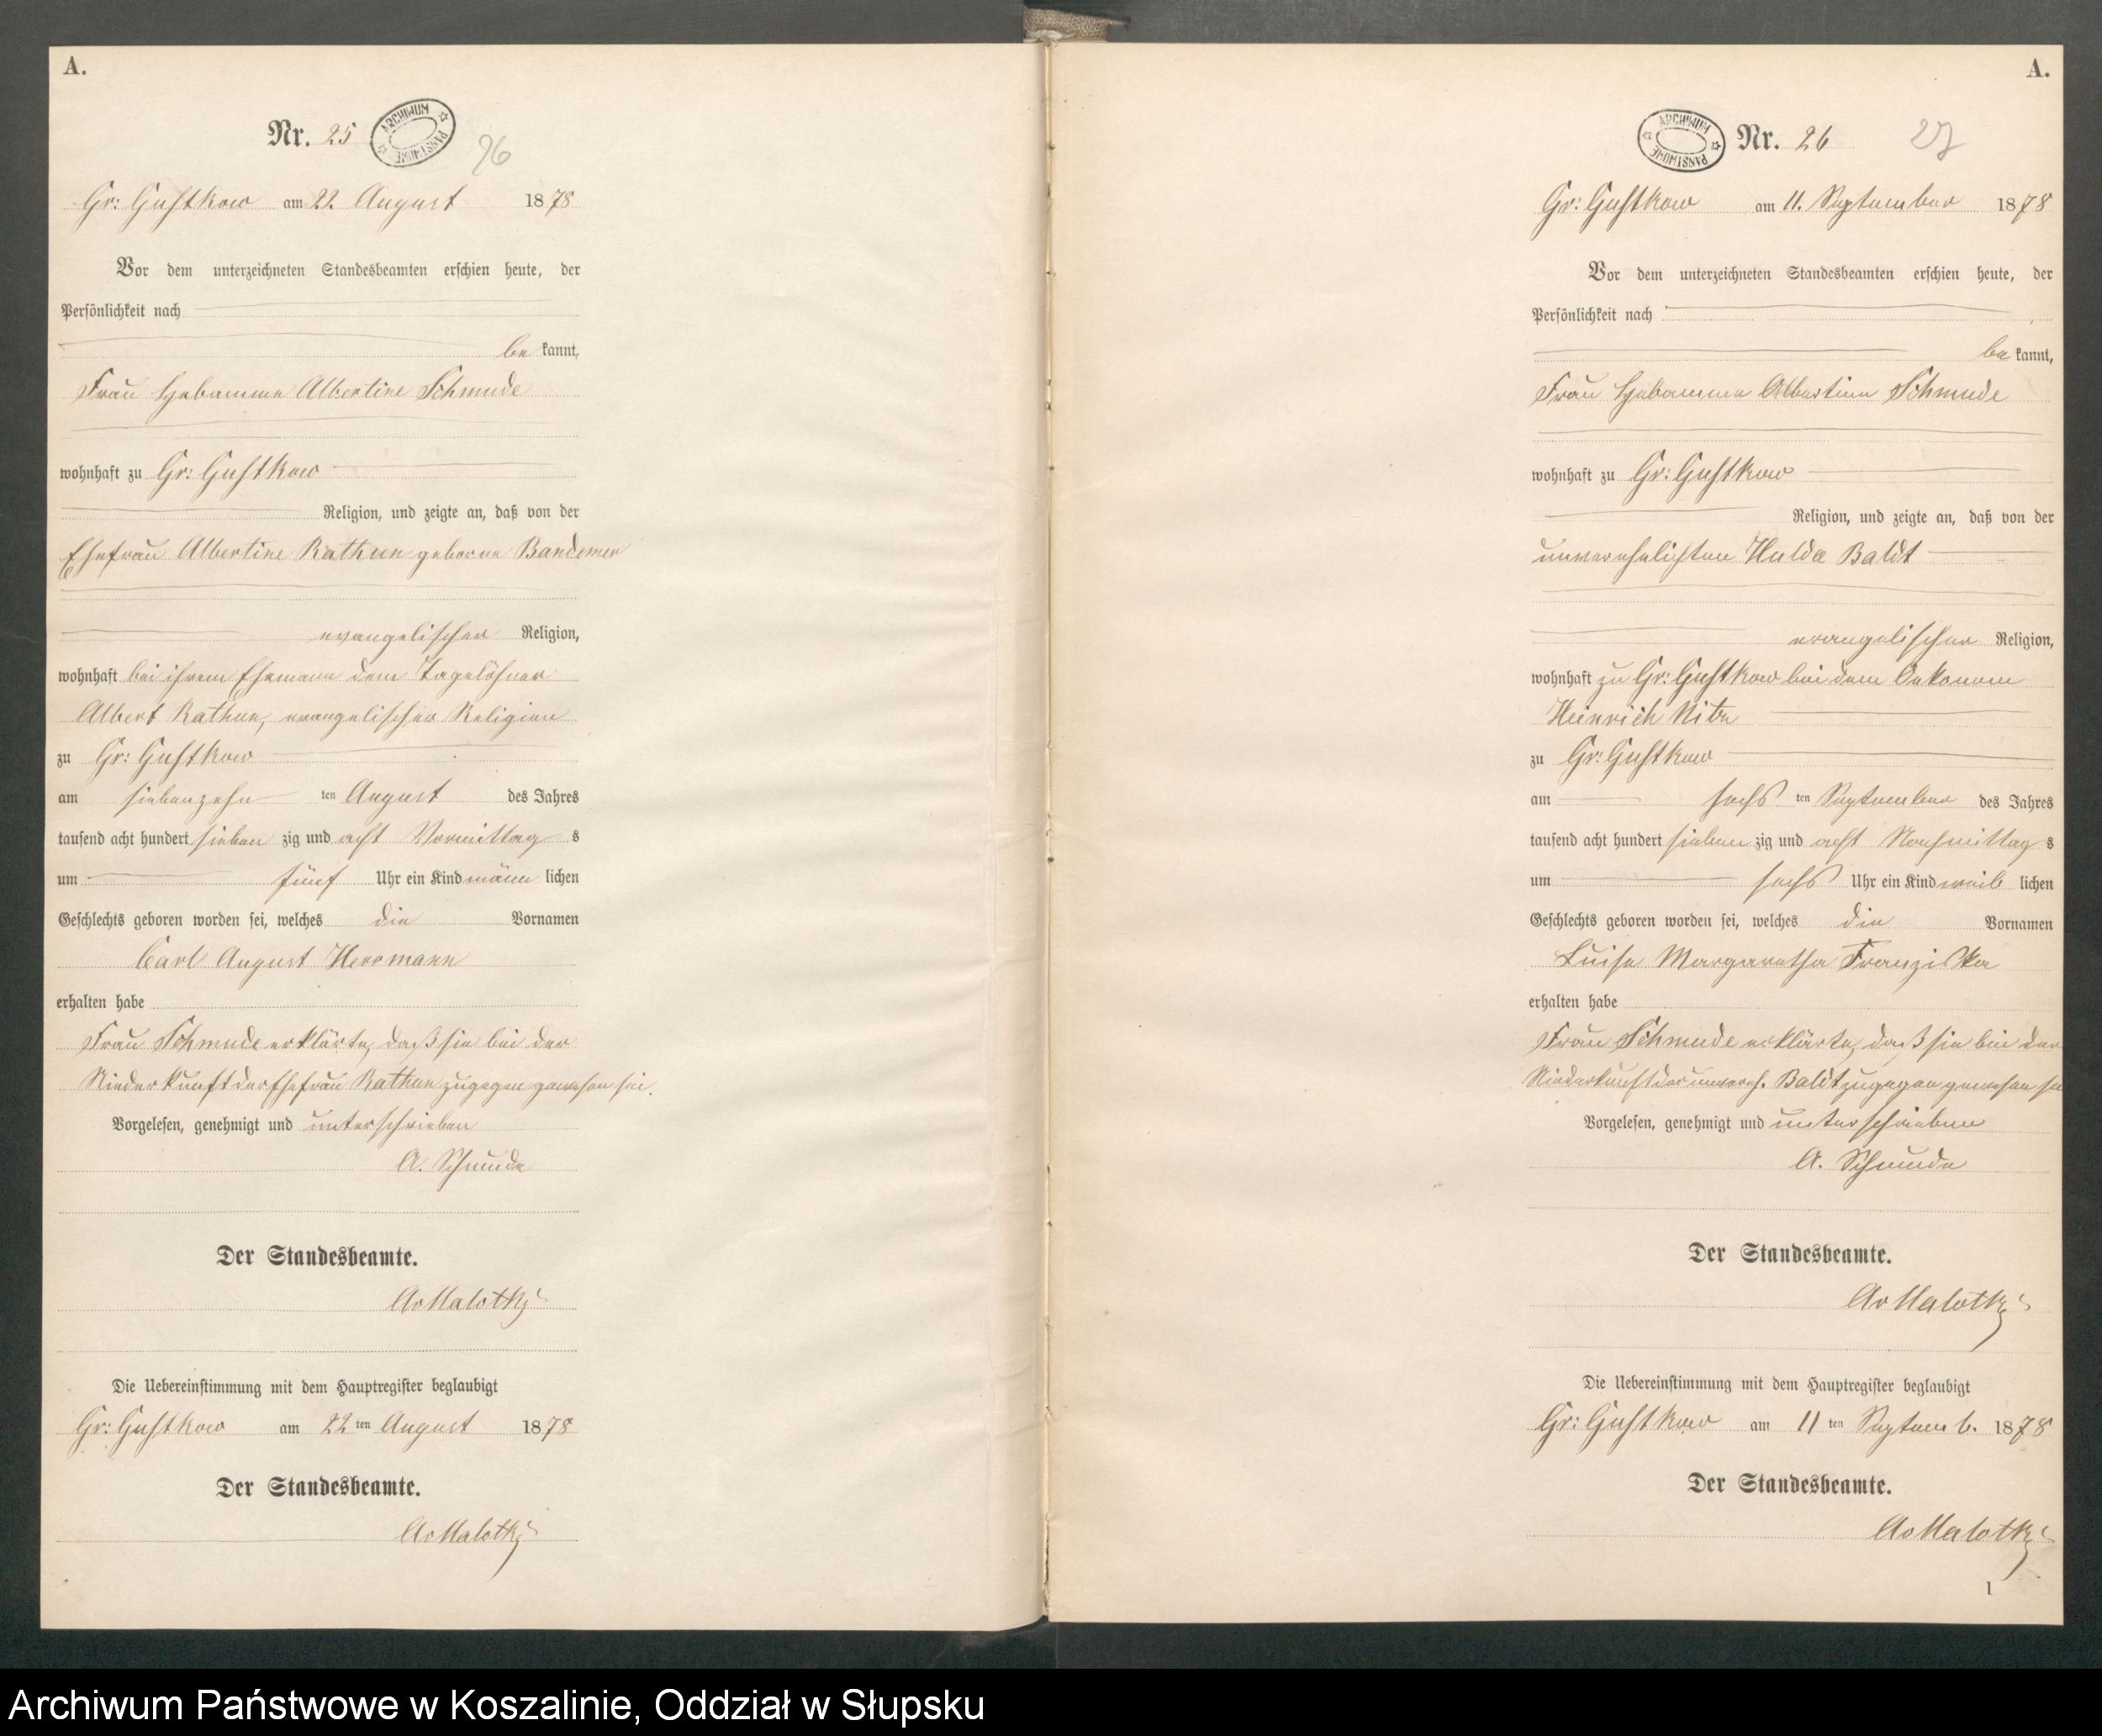 A.
Nr. 25
ARCHIWUM PAŃSTWOWE
26
Gr: Gustkow am 22. August 1878
Vor dem unterzeichneten Standesbeamten erschien heute, der
Persönlichkeit nach
be kannt,
Frau Hebamme Albertine Schmude
wohnhaft zu Gr: Gustkow
Religion, und zeigte an, daß von der
Ehefrau Albertine Rathke geborne Bandemer
evangelischer Religion,
wohnhaft bei ihrem Ehemann dem Tagelöhner
Albert Rathke, evangelischer Religion
zu Gr: Gustkow
am siebenzehn ten August des Jahres
tausend acht hundert sieben zig und acht Vormittag s
um fünf Uhr ein Kind männ lichen
Geschlechts geboren worden sei, welches die Vornamen
Carl August Herrmann
erhalten habe
Frau Schmude erklärte, daß sie bei der
Niederkunft der Ehefrau Rathke zugegen gewesen sei.
Vorgelesen, genehmigt und unterschrieben
A. Schmude
Der Standesbeamte.
AvMalotky
Die Uebereinstimmung mit dem Hauptregister beglaubigt
Gr: Gustkow am 22 ten August 1878
Der Standesbeamte.
AvMalotky
A.
ARCHIWUM PAŃSTWOWE
Nr. 26
27
Gr: Gustkow am 11. September 1878
Vor dem unterzeichneten Standesbeamten erschien heute, der
Persönlichkeit nach
be kannt,
Frau Hebamme Albertine Schmude
wohnhaft zu Gr: Gustkow
Religion, und zeigte an, daß von der
unverehelichten Hulda Baldt
evangelischer Religion,
wohnhaft zu Gr: Gustkow bei dem Oekonom
Heinrich Nitze
zu Gr: Gustkow
am sechs ten September des Jahres
tausend acht hundert sieben zig und acht Nachmittag s
um sechs Uhr ein Kind weib lichen
Geschlechts geboren worden sei, welches die Vornamen
Luise Margaretha Franziska
erhalten habe
Frau Schmude erklärte, daß sie bei der
Niederkunft der unvereh. Baldt zugegen gewesen sei
Vorgelesen, genehmigt und unterschrieben
A. Schmude
Der Standesbeamte.
AvMalotky
Die Uebereinstimmung mit dem Hauptregister beglaubigt
Gr: Gustkow am 11 ten Septemb. 1878
Der Standesbeamte.
AvMalotky
1
Archiwum Państwowe w Koszalinie, Oddział w Słupsku